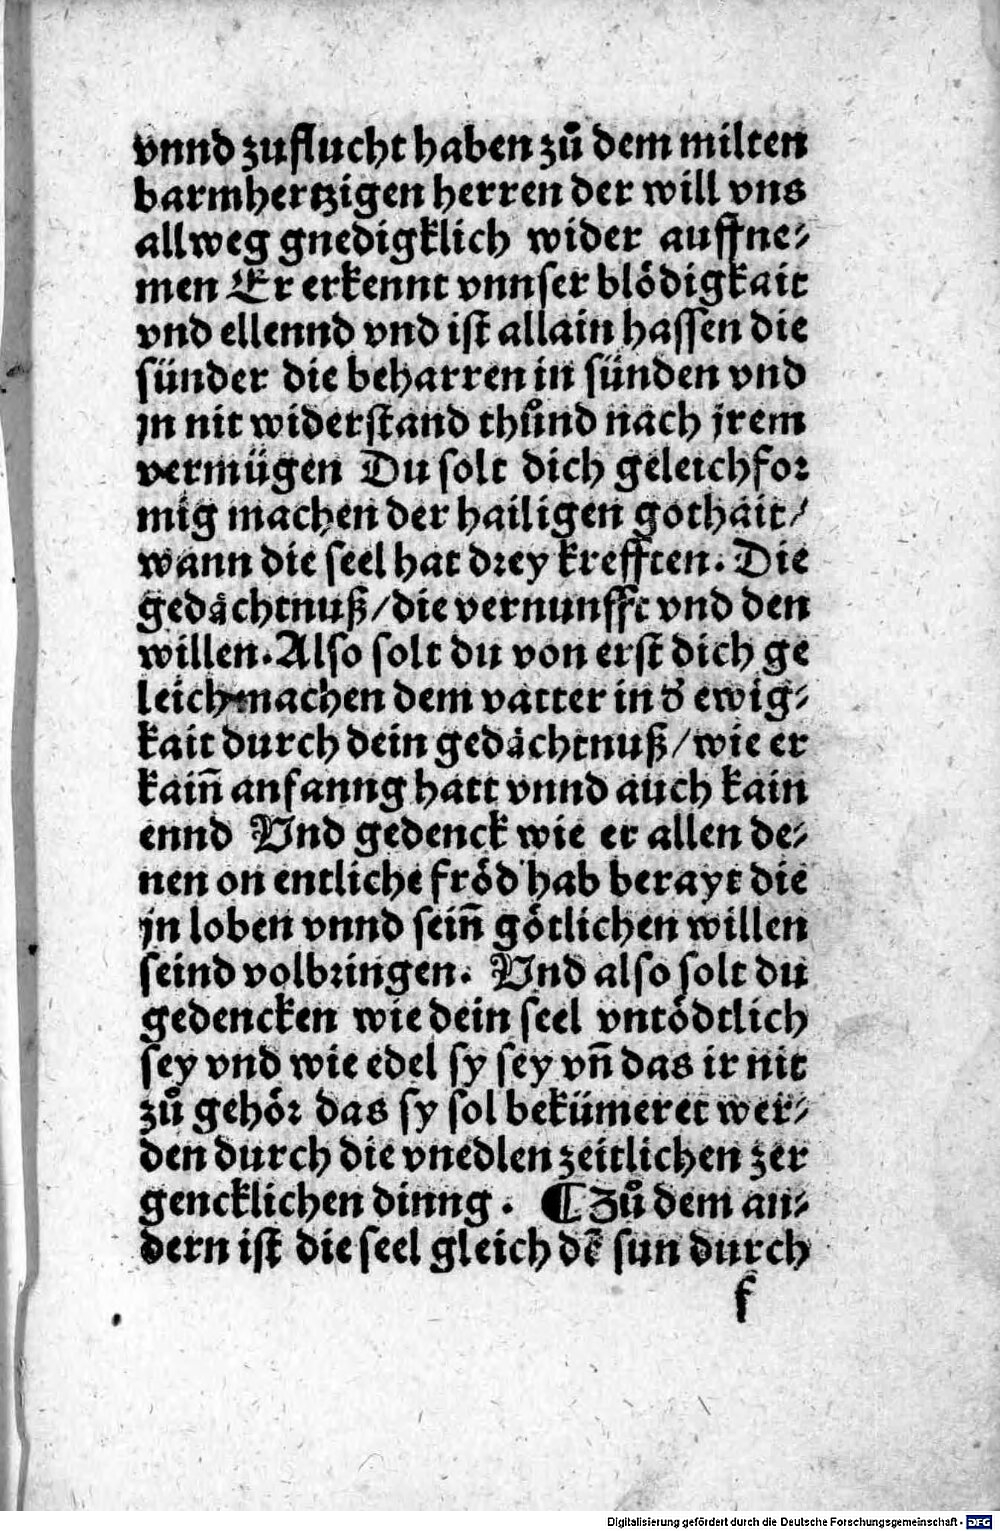 vnnd zuflucht haben zů dem milten
barmhertzigen herren der will vns
allweg gnedigklich wider auffne⸗
men Er erkennt vnnser blödigkait
vnd ellennd vnd ist allain hassen die
sünder die beharren in sünden vnd
jn nit widerstand thůnd nach jrem
vermügen Du solt dich geleichfor
mig machen der hailigen gothait/
wann die seel hat drey krefften. Die
gedächtnuß/die vernunfft vnd den
willen. Also solt du von erst dich ge
leich machen dem vatter in d᷑ ewig⸗
kait durch dein gedächtnuß/wie er
kain̄ anfanng hatt vnnd auch kain
ennd Vnd gedenck wie er allen de⸗
nen on entliche fröd hab berayt die
jn loben vnnd sein̄ götlichen willen
seind volbringen. Vnd also solt du
gedencken wie dein seel vntödtlich
sey vnd wie edel sy sey vn̄ das ir nit
zů gehör das sy sol bekümeret wer⸗
den durch die vnedlen zeitlichen zer
gencklichen dinng. ¶ Zů dem an⸗
dern ist die seel gleich dē sun durch
f
Digitalisierung gefördert durch die Deutsche Forschungsgemeinschaft - DFG